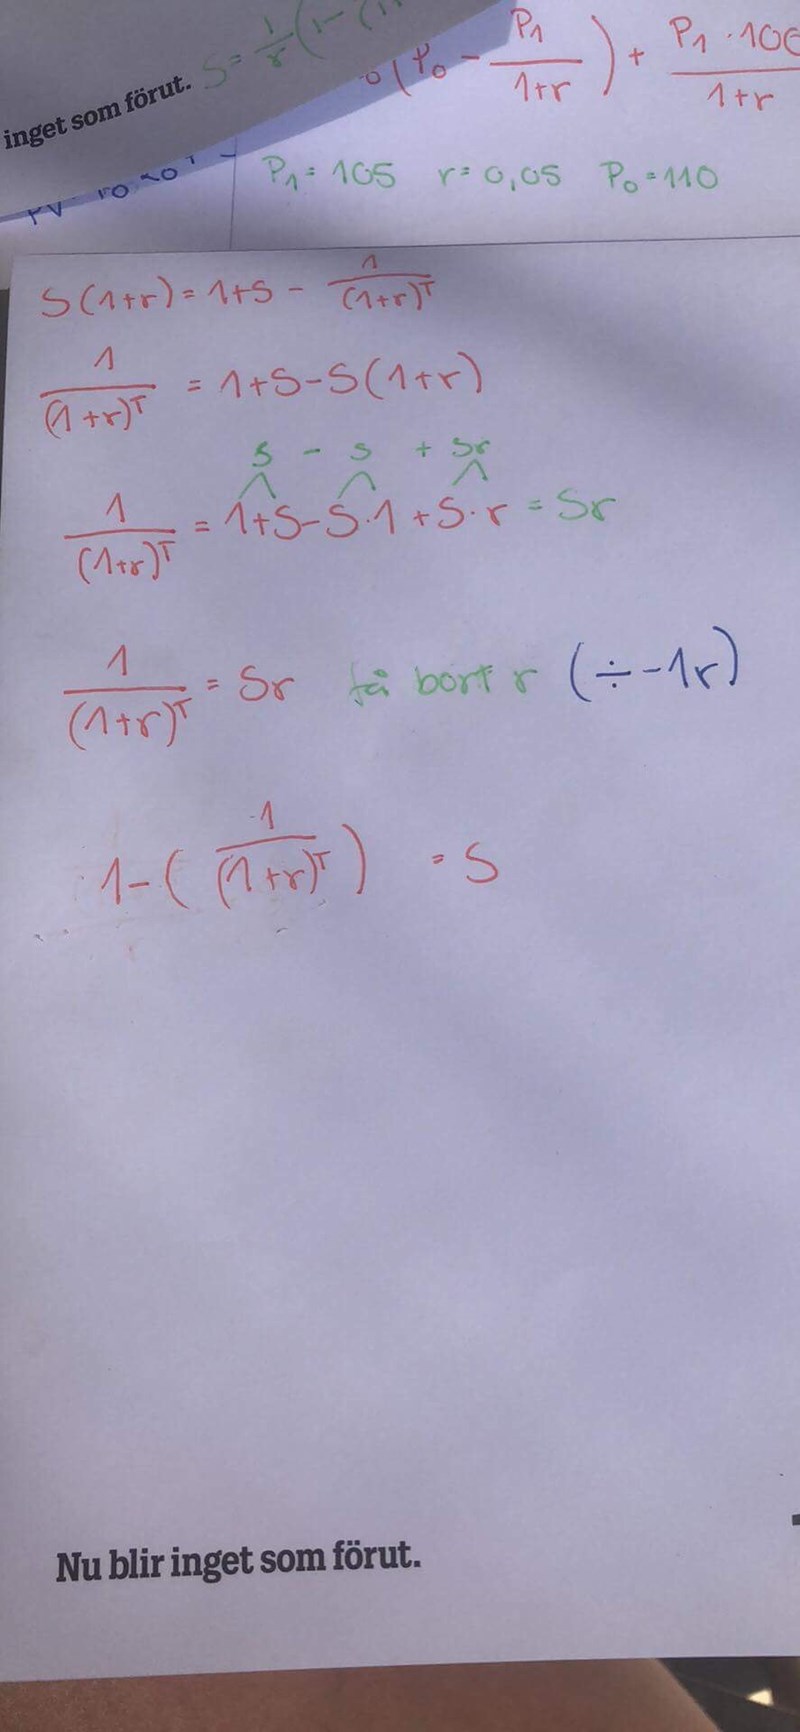 S = 1/r (1 - (1
inget som förut.
(P₀ - P₁/(1+r)) + P₁ · 100/(1+r)
P₁ = 105 r = 0,05 P₀ = 110
PV
S(1+r) = 1+S - 1/(1+r)ᵀ
1/(1+r)ᵀ = 1+S-S(1+r)
S - S + Sr
1/(1+r)ᵀ = 1+S-S·1+S·r = Sr
1/(1+r)ᵀ = Sr få bort r (÷-1r)
1-(1/(1+r)ᵀ) = S
Nu blir inget som förut.